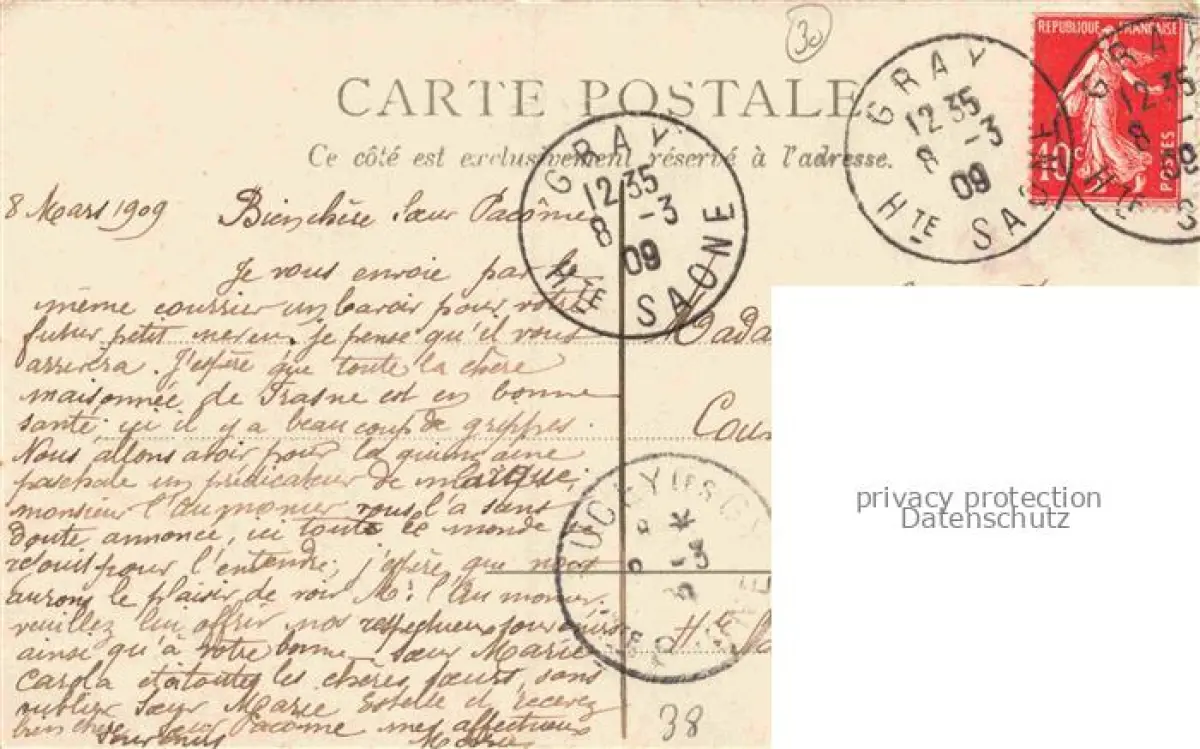 30
REPUBLIQUE FRANÇAISE
10c POSTES
GRAY
12 35
8 -3
09
Hte SAONE
GRAY
12 35
8 -3
09
Hte SAONE
GRAY
12 35
8 -3
09
Hte S
CARTE POSTALE
Ce côté est exclusivement réservé à l'adresse.
8 Mars 1909 Bien chère Sœur Pacôme
Je vous envoie par le
même courrier un bavoir pour votre
futur petit neveu, je pense qu'il vous
arrivera. J'espère que toute la chère
maisonnée de Frasne est en bonne
santé ici il y a beaucoup de grippes.
Nous allons avoir pour la quinzaine
paschale un prédicateur de marque;
monsieur l'Aumonier vous l'a sans
doute annoncé, ici toute le monde
rejouit pour l'entendre; j'espère que nous
aurons le plaisir de voir Mr l'Aumonier.
veuillez lui offrir nos respectueux souvenirs
ainsi qu'à votre bonne Sœur Marie
Carola et à toutes les chères sœurs, sans
oublier Sœur Marie Estelle et recevez
bien chère Sœur Pacôme mes affectueux
souvenirs
Mada
Cou
Hte Sa
-3
38
privacy protection
Datenschutz